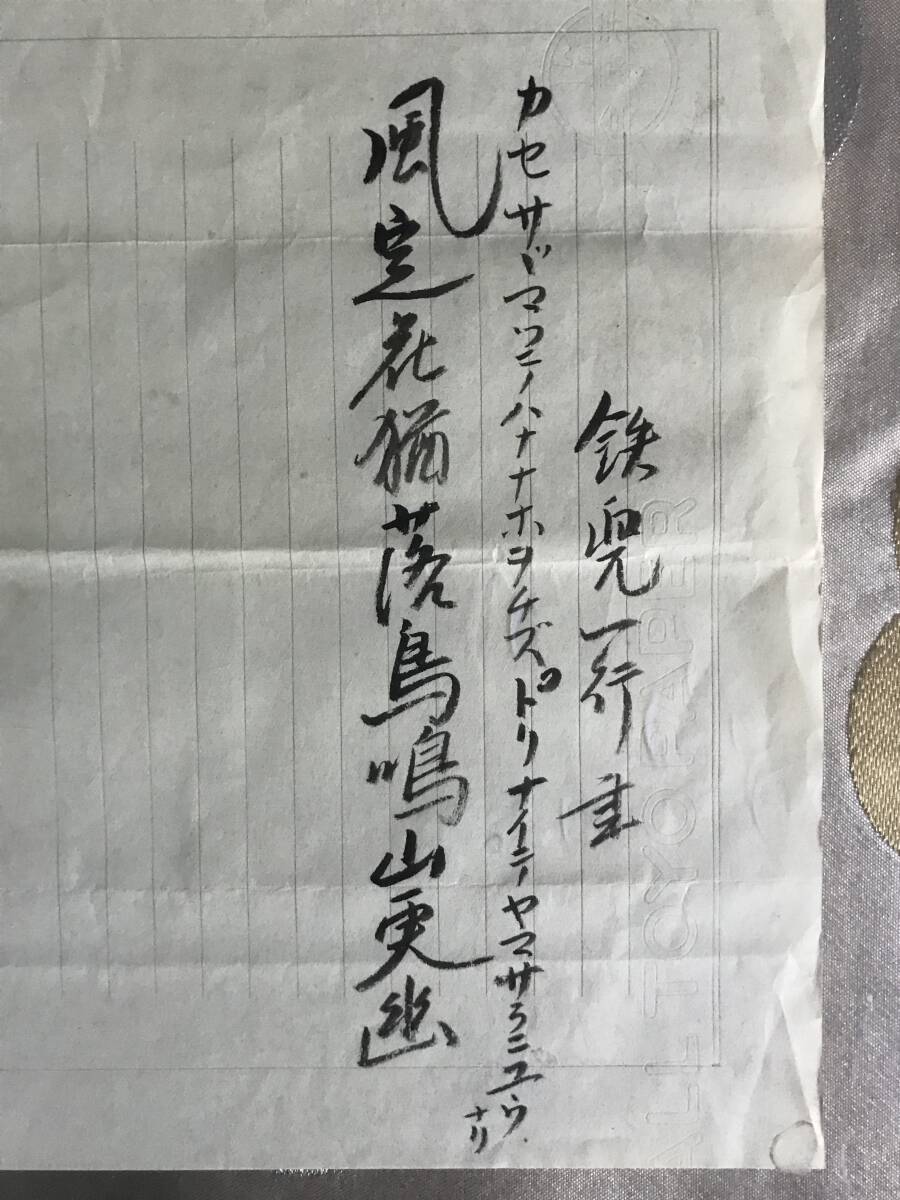 鉄兜一行書
カセサダマツテノハナナホヲチズドリナイテヤマサラニユウ
ナリ
風定花猶落鳥鳴山更幽